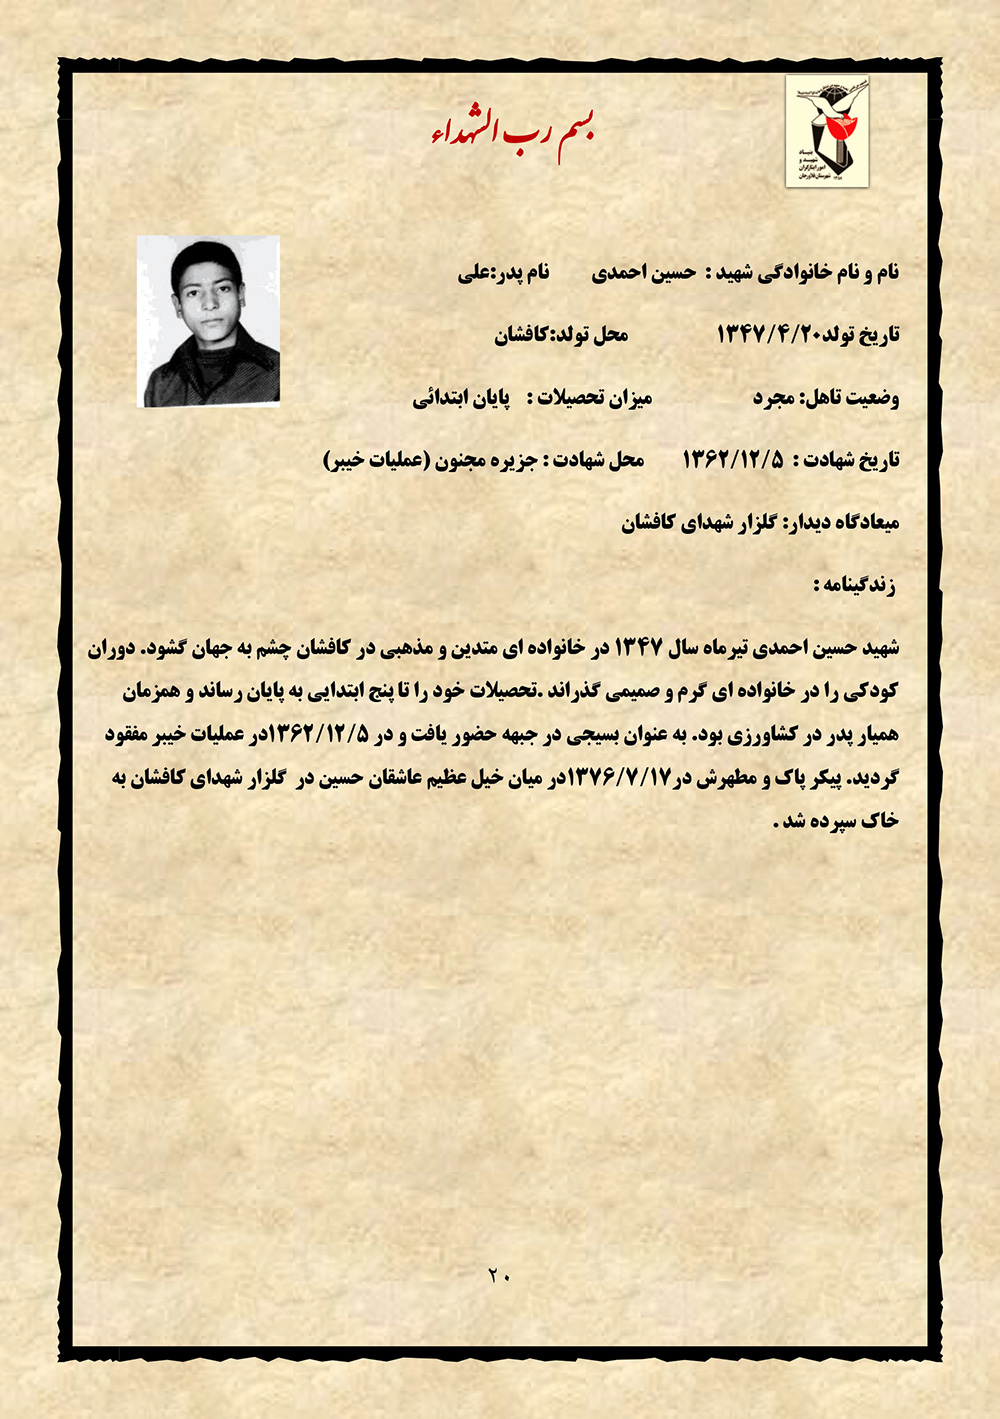 بسم رب الشهداء
بنیاد
شهید و
امور ایثارگران
شهرستان فلاورجان
نام و نام خانوادگی شهید : حسین احمدی نام پدر:علی
تاریخ تولد۱۳۴۷/۴/۲۰ محل تولد:کافشان
وضعیت تاهل: مجرد میزان تحصیلات : پایان ابتدائی
تاریخ شهادت : ۱۳۶۲/۱۲/۵ محل شهادت : جزیره مجنون (عملیات خیبر)
میعادگاه دیدار: گلزار شهدای کافشان
زندگینامه :
شهید حسین احمدی تیرماه سال ۱۳۴۷ در خانواده ای متدین و مذهبی در کافشان چشم به جهان گشود. دوران
کودکی را در خانواده ای گرم و صمیمی گذراند .تحصیلات خود را تا پنج ابتدایی به پایان رساند و همزمان
همیار پدر در کشاورزی بود. به عنوان بسیجی در جبهه حضور یافت و در ۱۳۶۲/۱۲/۵در عملیات خیبر مفقود
گردید. پیکر پاک و مطهرش در۱۳۷۶/۷/۱۷در میان خیل عظیم عاشقان حسین در گلزار شهدای کافشان به
خاک سپرده شد .
۲۰